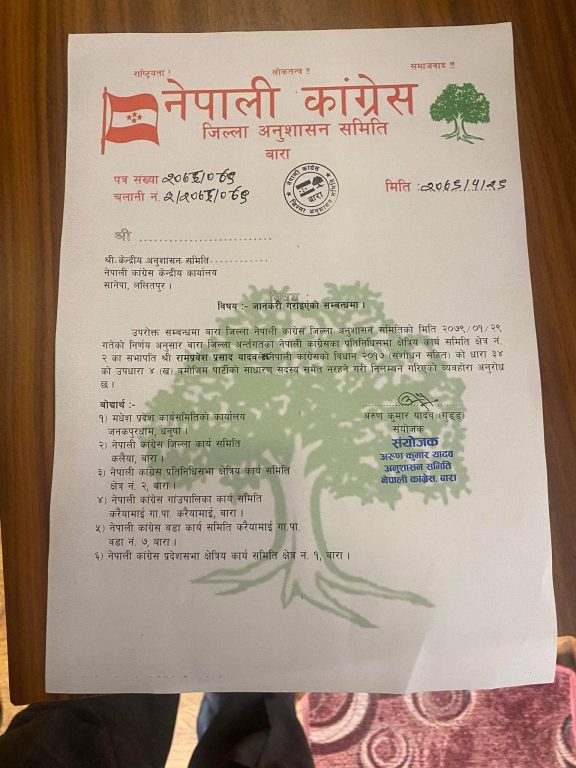 राष्ट्रियता ! लोकतन्त्र !! समाजवाद !!!
नेपाली कांग्रेस
जिल्ला अनुशासन समिति
बारा
पत्र संख्या
चलानी नं.
मिति :
नेपाली कांग्रेस
जिल्ला अनुशासन समिति
बारा
श्री ............................
श्री केन्द्रीय अनुशासन समिति.............
नेपाली कांग्रेस केन्द्रीय कार्यालय
सानेपा, ललितपुर ।
विषय :
विषय :- जानकरी गराइएको सम्बन्धमा ।
उपरोक्त सम्बन्धमा बारा जिल्ला नेपाली कांग्रेस जिल्ला अनुशासन समितिको मिति २०७९/०१/२९
गतेको निर्णय अनुसार बारा जिल्ला अर्न्तगतका नेपाली कांग्रेसका प्रतिनिधिसभा क्षेत्रिय कार्य समिति क्षेत्र नं.
२ का सभापति श्री रामप्रवेश प्रसाद यादव नेपाली कांग्रेसको विधान २०१७ (संशोधन सहित) को धारा ३४
को उपधारा ४ (ख) बमोजिम पार्टीको साधारण सदस्य समेत नरहने गरी निलम्बन गरिएको व्यवहोरा अनुरोध
छ ।
बोद्यार्थ :-
१) मधेश प्रदेश कार्यसमितिको कार्यालय
जनकपुरधाम, धनुषा ।
२) नेपाली कांग्रेस जिल्ला कार्य समिति
कलैया, बारा ।
३) नेपाली कांग्रेस प्रतिनिधिसभा क्षेत्रिय कार्य समिति
क्षेत्र नं. २, बारा ।
४) नेपाली कांग्रेस गांउपालिका कार्य समिति
करैयामाई गा.पा. करैयामाई, बारा ।
५) नेपाली कांग्रेस वडा कार्य समिति करैयामाई गा.पा.
वडा नं. ७, बारा ।
६) नेपाली कांग्रेस प्रदेशसभा क्षेत्रिय कार्य समिति क्षेत्र नं. १, बारा ।
अरुण कुमार यादव (गुड्डु)
संयोजक
संयोजक
अरुण कुमार यादव
अनुशासन समिति
नेपाली कांग्रेस, बारा